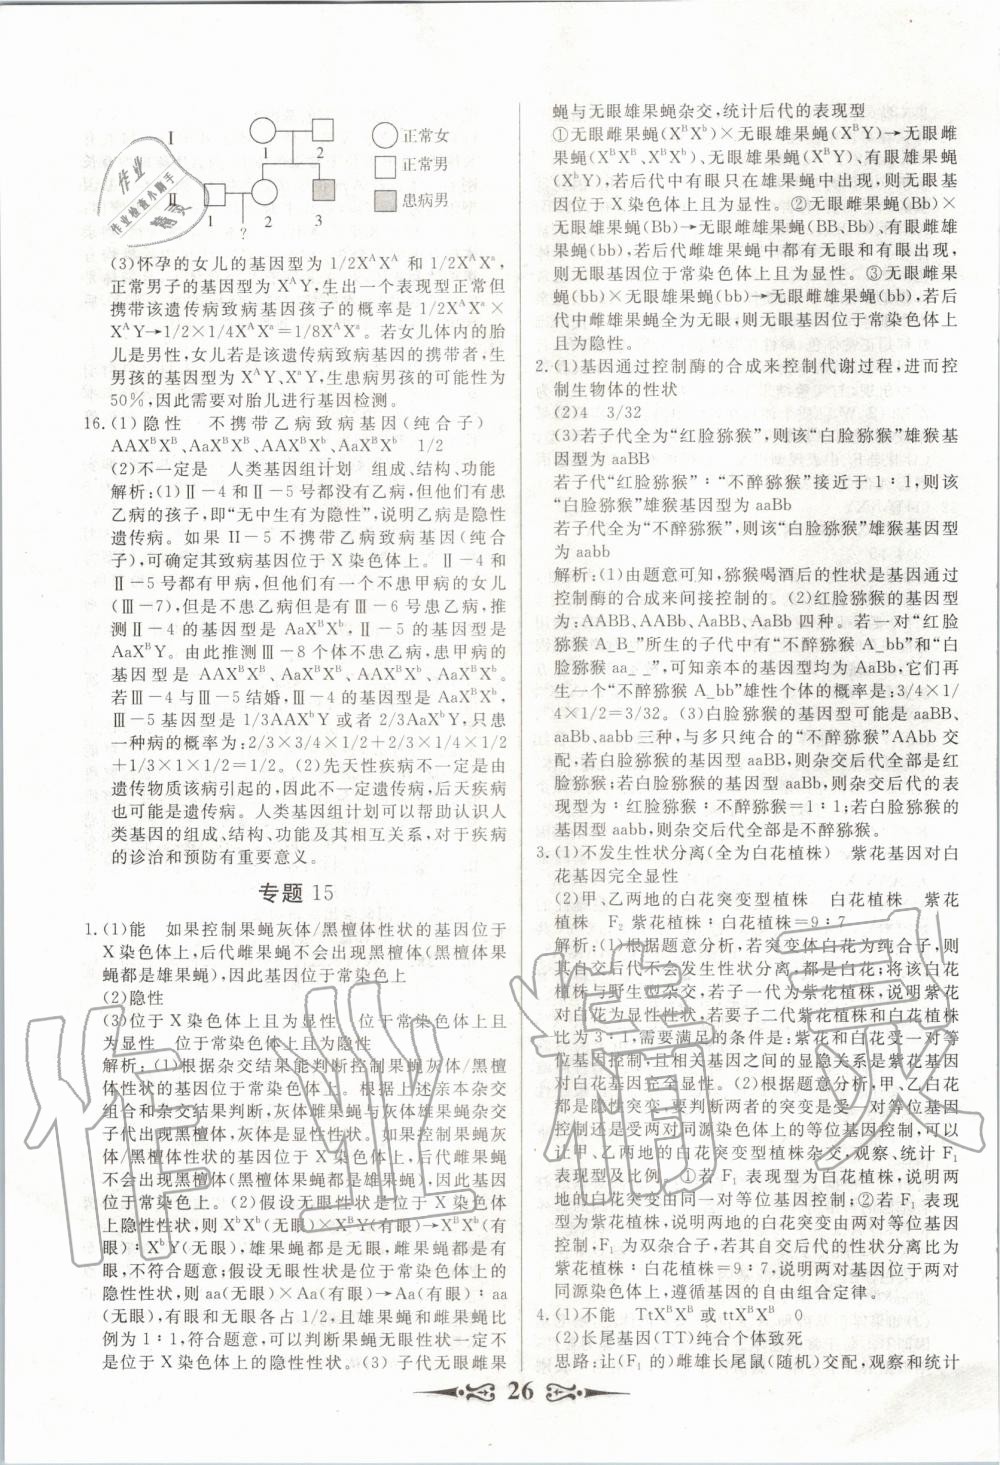 Ⅰ
1 2
Ⅱ
1 2 3
?
正常女
正常男
患病男
作业
作业检查小助手
精灵
(3)怀孕的女儿的基因型为 1/2XᴬXᴬ 和 1/2XᴬXᵃ,
正常男子的基因型为 XᴬY,生出一个表现型正常但
携带该遗传病致病基因孩子的概率是 1/2XᴬXᵃ×
XᴬY→1/2×1/4XᴬXᵃ=1/8XᴬXᵃ。若女儿体内的胎
儿是男性,女儿若是该遗传病致病基因的携带者,生
男孩的基因型为 XᴬY、XᵃY,生患病男孩的可能性为
50%,因此需要对胎儿进行基因检测。
16.(1)隐性 不携带乙病致病基因(纯合子)
AAXᴮXᴮ、AaXᴮXᴮ、AAXᴮXᵇ、AaXᴮXᵇ 1/2
(2)不一定是 人类基因组计划 组成、结构、功能
解析:(1)Ⅱ-4和Ⅱ-5号都没有乙病,但他们有患
乙病的孩子,即“无中生有为隐性”,说明乙病是隐性
遗传病。如果 Ⅱ-5 不携带乙病致病基因(纯合
子),可确定其致病基因位于 X 染色体上。Ⅱ-4和
Ⅱ-5号都有甲病,但他们有一个不患甲病的女儿
(Ⅲ-7),但是不患乙病但是有Ⅲ-6号患乙病,推
测Ⅱ-4的基因型是 AaXᴮXᵇ,Ⅱ-5的基因型是
AaXᴮY。由此推测Ⅲ-8个体不患乙病,患甲病的
基因型是 AAXᴮXᴮ、AaXᴮXᴮ、AAXᴮXᵇ、AaXᴮXᵇ。
若Ⅲ-4与Ⅲ-5结婚,Ⅲ-4的基因型是 AaXᴮXᵇ,
Ⅲ-5基因型是 1/3AAXᵇY 或者 2/3AaXᵇY,只患
一种病的概率为:2/3×3/4×1/2+2/3×1/4×1/2
+1/3×1×1/2=1/2。(2)先天性疾病不一定是由
遗传物质该病引起的,因此不一定是遗传病,后天疾病
也可能是遗传病。人类基因组计划可以帮助认识人
类基因的组成、结构、功能及其相互关系,对于疾病
的诊治和预防有重要意义。
专题 15
1.(1)能 如果控制果蝇灰体/黑檀体性状的基因位于
X染色体上,后代雌果蝇不会出现黑檀体(黑檀体果
蝇都是雄果蝇),因此基因位于常染色上
(2)隐性
(3)位于X染色体上且为显性 位于常染色体上且
为显性 位于常染色体上且为隐性
解析:(1)根据杂交结果能判断控制果蝇灰体/黑檀
体性状的基因位于常染色体上。根据上述亲本杂交
组合和杂交结果判断,灰体雌果蝇与灰体雄果蝇杂交
子代出现黑檀体,灰体是显性性状。如果控制果蝇灰
体/黑檀体性状的基因位于X染色体上,后代雌果蝇
不会出现黑檀体(黑檀体果蝇都是雄果蝇),因此基因
位于常染色上。(2)假设无眼性状位于X染色体
上隐性性状,则 XᵇXᵇ(无眼)×XᴮY(有眼)→XᴮXᵇ(有
眼)∶XᵇY(无眼),雄果蝇都是无眼,雌果蝇都是有眼,
不符合题意;假设无眼性状是位于常染色体上隐性
性状,则 aa(无眼)×Aa(有眼)→Aa(有眼)∶aa
(无眼),有眼和无眼各占1/2,且雄果蝇和雌果蝇比
例为1∶1,符合题意,可以判断果蝇无眼性状一定不
是位于X染色体上的显性性状。(3)子代无眼雌果
蝇与无眼雄果蝇杂交,统计后代的表现型
①无眼雌果蝇(XᴮXᵇ)×无眼雄果蝇(XᴮY)→无眼雌
果蝇(XᴮXᴮ、XᴮXᵇ)、无眼雄果蝇(XᴮY)、有眼雄果蝇
(XᵇY),若后代有眼只在雄果蝇中出现,则无眼基
因位于X染色体上且为显性。②无眼雌果蝇(Bb)×
无眼雄果蝇(Bb)→无眼雌果蝇(BB、Bb)、有眼雌
果蝇(bb),若后代雌雄果蝇中都有无眼和有眼出现,
则无眼基因位于常染色体上且为显性。③无眼雌
果蝇(bb)×无眼雄果蝇(bb)→无眼果蝇(bb),若后
代中雌雄果蝇全为无眼,则无眼基因位于常染色体上
且为隐性。
2.(1)基因通过控制酶的合成来控制代谢过程,进而控
制生物体的性状
(2)4 3/32
(3)若子代全为“红脸猕猴”,则该“白脸猕猴”雄猴基
因型为 aaBB
若子代“红脸猕猴”∶“不醉猕猴”接近于1∶1,则该
“白脸猕猴”雄猴基因型为 aaBb
若子代全为“不醉猕猴”,则该“白脸猕猴”雄猴基因型
为 aabb
解析:(1)由题意可知,猕猴喝酒后的性状是基因通过
控制酶的合成来间接控制的。(2)红脸猕猴的基因型
为:AABB、AABb、AaBb、AaBB 四种。若一对“红脸
猕猴 A_B_”所生的子代中有“不醉猕猴 A_bb”和“白
脸猕猴 aa_ _”,可知亲本的基因型均为 AaBb,它们再
生一个“不醉猕猴 A_bb”雄性个体的概率是:3/4×1/
4×1/2=3/32。(3)白脸猕猴的基因型可能是 aaBB、
aaBb、aabb 三种,与多只纯合的“不醉猕猴”AAbb 交
配,若白脸猕猴的基因型 aaBB,则杂交后代全部是红
脸猕猴;若白脸猕猴的基因型 aaBb,则杂交后代的表
现型为:红脸猕猴∶不醉猕猴=1∶1;若白脸猕猴的
基因型 aabb,则杂交后代全部是不醉猕猴。
3.(1)不发生性状分离(全为白花植株) 紫花基因对白
花基因完全显性
(2)甲、乙两地的白花突变型植株 白花植株 紫花
植株 F₂ 紫花植株∶白花植株=9∶7
解析:(1)根据题意分析,若突变体白花为纯合子,则
其自交后代不会发生性状分离,都是白花;将白花植
株与野生型杂交,若子一代为紫花植株,说明紫花
对白花为显性性状;若要子二代紫花植株和白花植株
比为3∶1,需要满足的条件是:紫花和白花受一对等位
基因控制,且相关基因之间的显隐关系是紫花基因对
白花基因完全显性。(2)根据题意分析,甲、乙白花都
是隐性突变,要判断两者的突变是受一对等位基因
控制还是受两对同源染色体上的等位基因控制,可以
让甲、乙两地的白花突变型植株杂交,观察、统计 F₁
表现型及比例。①若 F₁ 表现型为白花植株,说明两
地的白花突变由同一对等位基因控制;②若 F₁ 表现型
为紫花植株,说明两地的白花突变由两对等位基因
控制,F₁ 为双杂合子,若其自交后代的性状分离比为
紫花植株∶白花植株=9∶7,说明两对基因位于两对
同源染色体上,遵循基因的自由组合定律。
4.(1)不能 TtXᴮXᴮ 或 ttXᴮXᴮ 0
(2)长尾基因(TT)纯合个体致死
思路:让(F₁ 的)雌雄长尾鼠(随机)交配,观察和统计
26
作业精灵